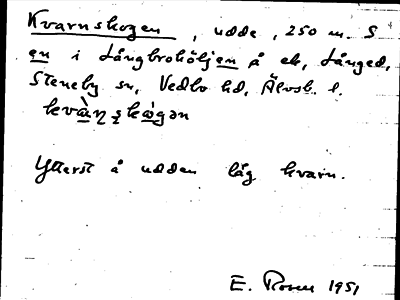 Kvarnskogen, udde, 250 m. S
en i Långbrohöljen å ek, Långed,
Steneby sn, Vedbo hd, Älvsb. l.
kvàṇ ṣkò̱gən
Ytterst å udden låg kvarn.
E. Rosen 1951